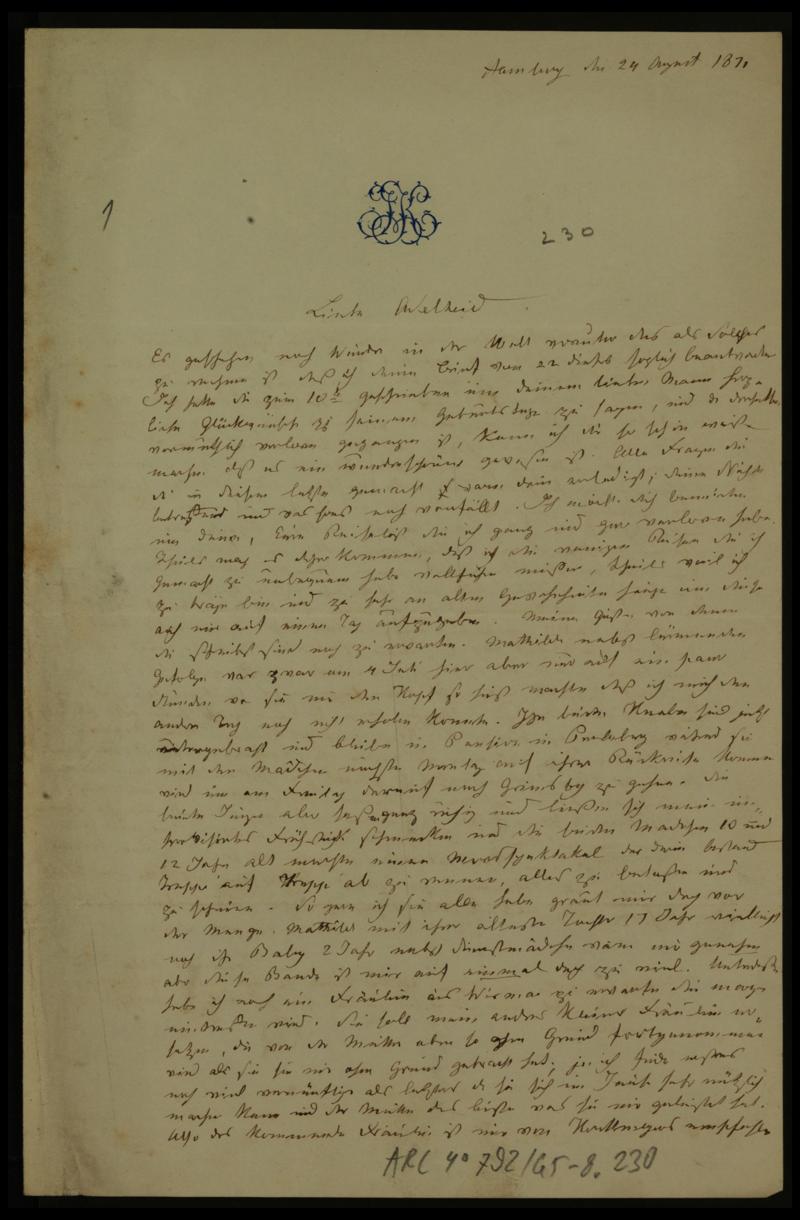 Hamburg den 24 August 187
1
230
Liebe Adelheid
Es geschehen noch Wunder in der Welt worunter dies als solches
zu rechnen ist daß ich deinen Brief vom 22 dieses sogleich beantworte
Ich hatte dir zum 10ten geschrieben um deinem lieben Mann herz-
liche Glückwünsche zu seinem Geburtstage zu sagen, und da derselbe
vermuthlich verloren gegangen ist, kann ich dir so schön weiß
machen daß es ein wunderschöner gewesen ist. Alle Fragen die
du in deinem letzten gemacht waren darin erledigt; deine Nichte
betreffend und was sonst noch vorfällt. Ich möchte dich beneiden
um deine, Eure Reiselust die ich ganz und gar verloren habe.
Theils mag es daher kommen, daß ich die wenigen Reisen die ich
gemacht zu unbequem habe vollführen müssen, theils weil ich
zu träge bin und zu sehr an alten Gewohnheiten hänge um diese
auch nur auf einen Tag aufzugeben. Meine Gäste von denen
du schreibst sind noch zu erwarten. Mathilde nebst lärmenden
Gefolge war zwar am 4 Juli hier aber nur auf ein paar
Stunden wo sie mir den Kopf so heiß machten daß ich mich den
andern Tag noch nicht erholen konnte. Ihre beiden Knaben sind jetzt
untergebracht und bleiben in Pension in während sie
mit den Mädchen nächsten Montag auf ihrer Rückreise kommen
wird um am Freitag darauf nach Grimsby zu gehen. Die
beiden Jungen aber saßen ganz ruhig und ließen sich mein im-
provisirtes Frühstück schmecken und die beiden Mädchen 10 und
12 Jahr alt machten einen Mordspektakel der darin bestand
Treppe auf Treppe ab zu rennen, alles zu betasten und
zu schreien. So gern ich sie alle habe graut mir doch vor
der Menge. Mathilde mit ihrer ältesten Tochter 17 Jahr vielleicht
noch ihr Baby 2 Jahr nebst Dienstmädchen wäre mir genehm
aber diese Bande ist mir auf einmal doch zu viel. Unterdeß
habe ich noch ein Fräulein aus Wismar zu erwarten die morgen
eintreffen wird. Sie soll mein anderes kleines Fräulein er-
setzen, die von der Mutter eben so ohne Grund fortgenommen
wird als sie sie mir ohne Grund gebracht hat; ja ich finde ersteres
noch viel vernünftiger als letzteres da sie sich im Hause sehr nützlich
machen kann und der Mutter das beste was sie mir geleistet hat.
Also das kommende Fräulein ist mir von empfohlen
ARC 4° 792/G5-8. 230